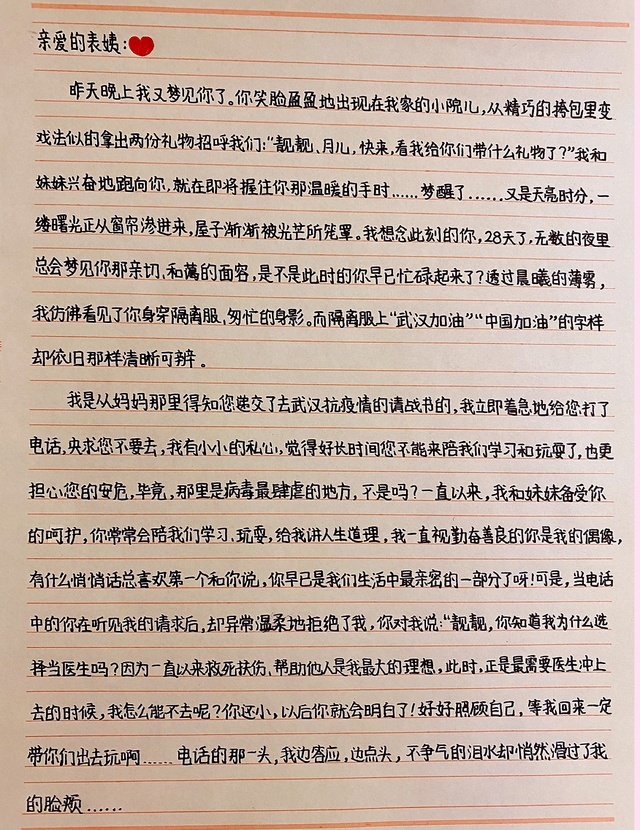 亲爱的表姨:
昨天晚上我又梦见你了。你笑脸盈盈地出现在我家的小院儿,从精巧的挎包里变
戏法似的拿出两份礼物招呼我们:“靓靓、月儿,快来,看我给你们带什么礼物了?”我和
妹妹兴奋地跑向你,就在即将握住你那温暖的手时……梦醒了……又是天亮时分,一
缕曙光正从窗帘渗进来,屋子渐渐被光芒所笼罩。我想念此刻的你,28天了,无数的夜里
总会梦见你那亲切、和蔼的面容,是不是此时的你早已忙碌起来了?透过晨曦的薄雾,
我仿佛看见了你身穿隔离服、匆忙的身影。而隔离服上“武汉加油”“中国加油”的字样
却依旧那样清晰可辨。
我是从妈妈那里得知您递交了去武汉抗疫情的请战书的,我立即着急地给您打了
电话,央求您不要去,我有小小的私心,觉得好长时间您不能来陪我们学习和玩耍了,也更
担心您的安危,毕竟,那里是病毒最肆虐的地方,不是吗?一直以来,我和妹妹备受你
的呵护,你常常会陪我们学习、玩耍,给我讲人生道理,我一直视勤奋善良的你是我的偶像,
有什么悄悄话总喜欢第一个和你说,你早已是我们生活中最亲密的一部分了呀!可是,当电话
中的你在听见我的请求后,却异常温柔地拒绝了我,你对我说:“靓靓,你知道我为什么选
择当医生吗?因为一直以来救死扶伤、帮助他人是我最大的理想,此时,正是最需要医生冲上
去的时候,我怎么能不去呢?你还小,以后你就会明白了!好好照顾自己,等我回来一定
带你们出去玩啊……电话的那一头,我边答应,边点头,不争气的泪水却悄然滑过了我
的脸颊……